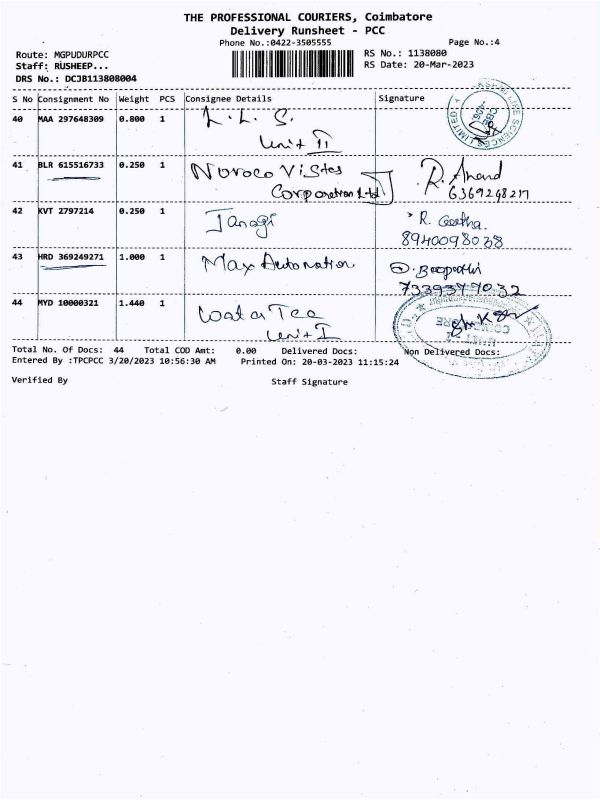 THE PROFESSIONAL COURIERS, Coimbatore
Delivery Runsheet - PCC
Phone No.:0422-3505555 Page No.:4
Route: MGPUDURPCC RS No.: 1138080
Staff: RUSHEEP... RS Date: 20-Mar-2023
DRS No.: DCJB113808004
S No Consignment No Weight PCS Consignee Details Signature
40 MAA 297648309 0.800 1 L. L. S.
Unit II
41 BLR 615516733 0.250 1 Novoco Vistas R. Anand
Corporation Ltd 6369248217
42 KVT 2797214 0.250 1 Janagi R. Geetha.
8940098038
43 HRD 369249271 1.000 1 Max Automation
7339377032
44 MYD 10000321 1.440 1 Tea
Unit I
Total No. Of Docs: 44 Total COD Amt: 0.00 Delivered Docs: Non Delivered Docs:
Entered By :TPCPCC 3/20/2023 10:56:30 AM Printed On: 20-03-2023 11:15:24
Verified By Staff Signature